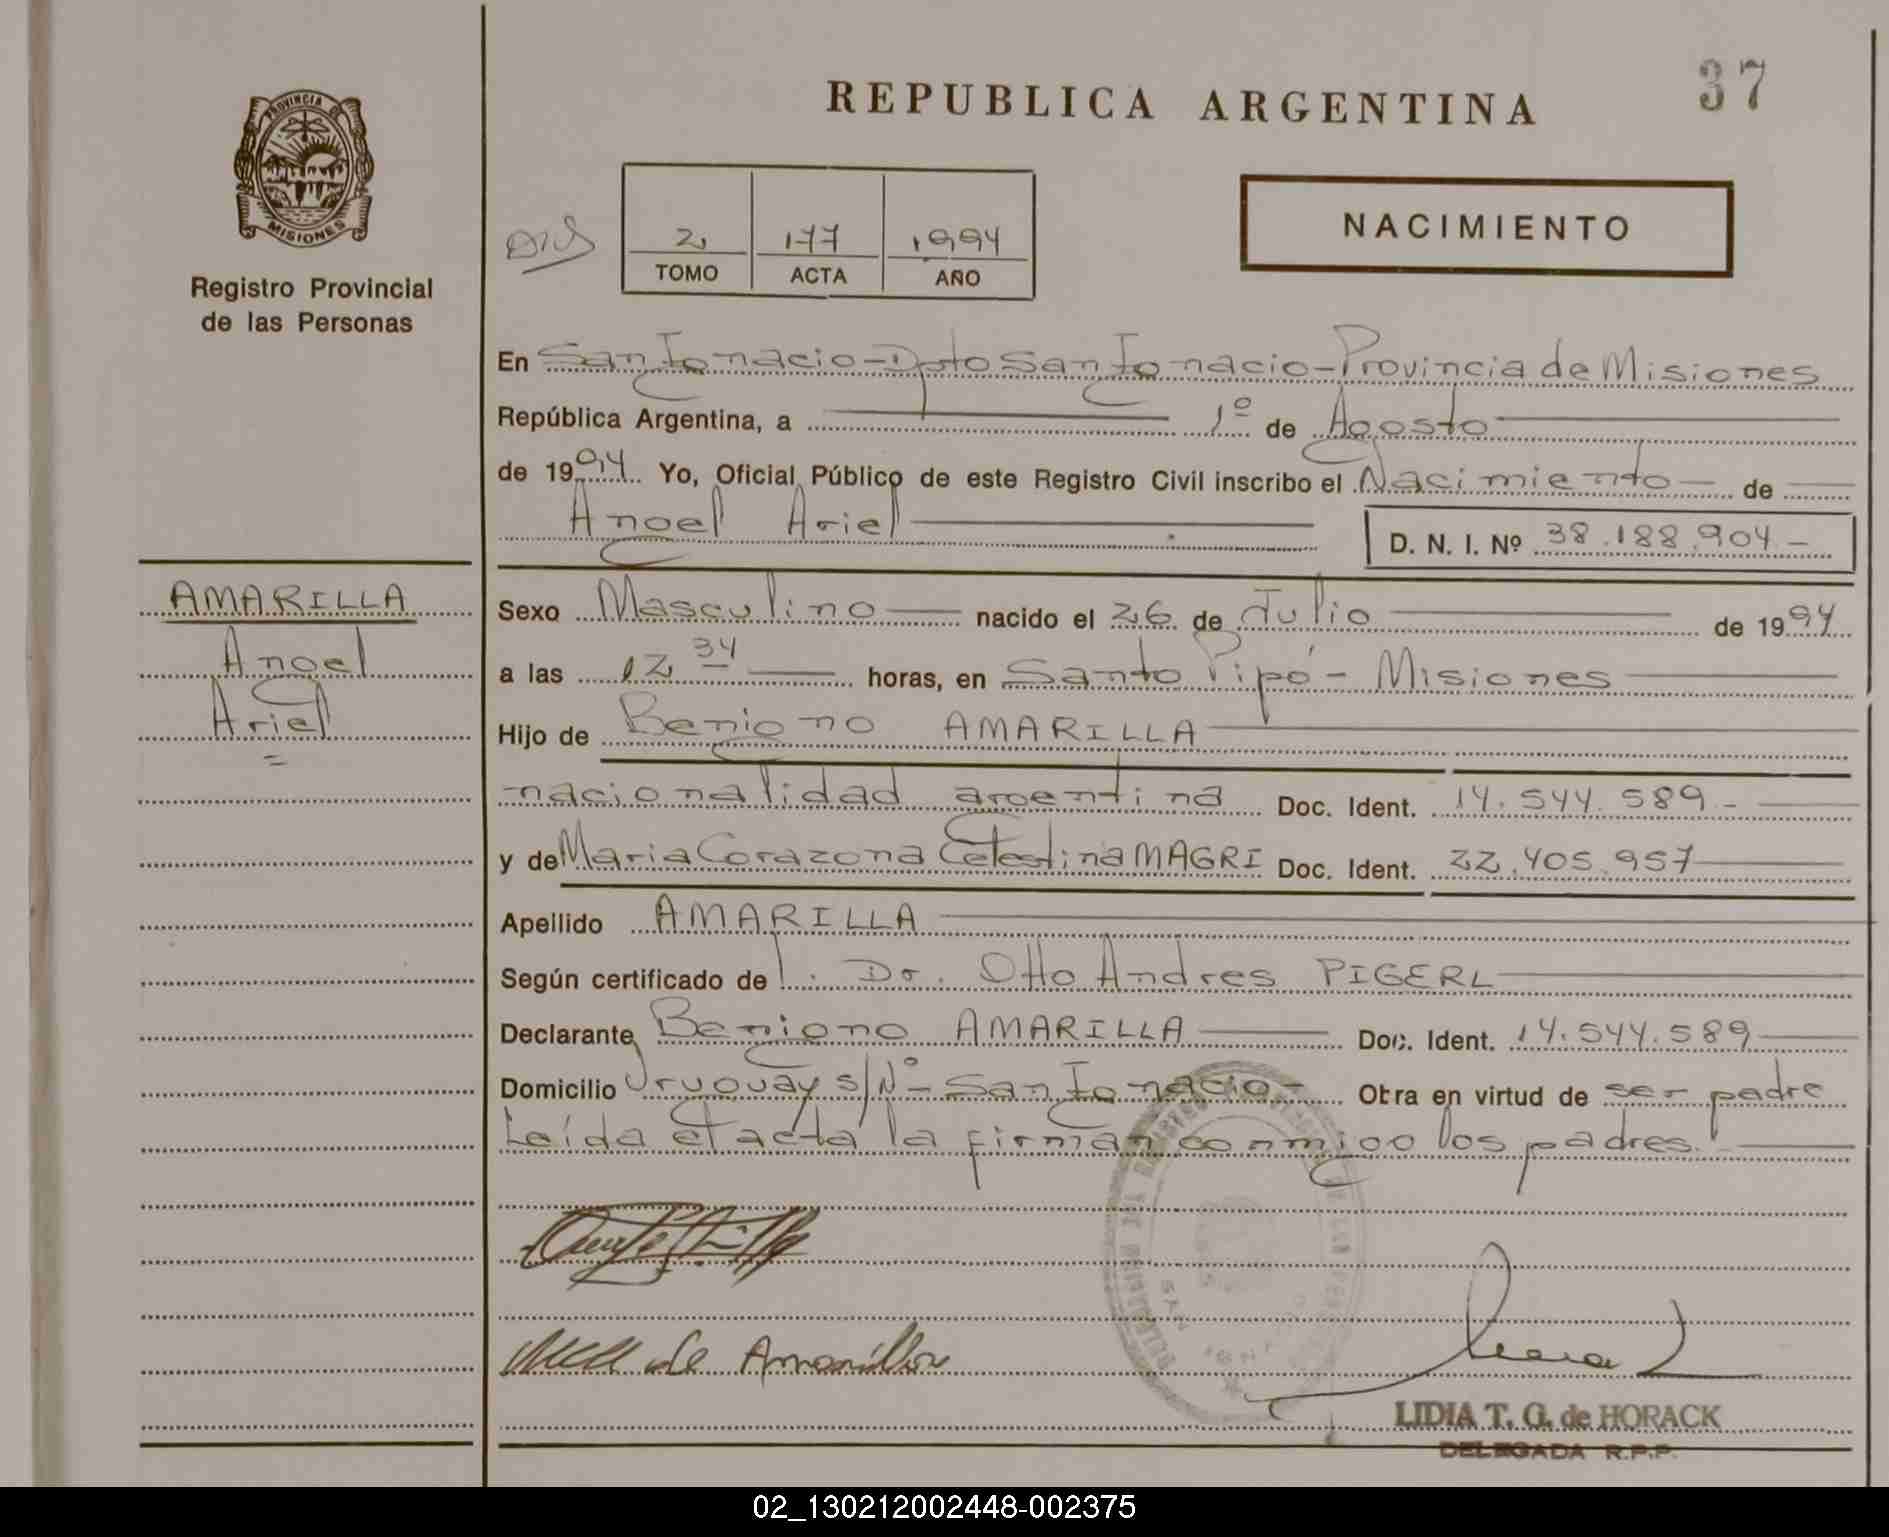 REPUBLICA ARGENTINA
37
PROVINCIA DE
MISIONES
Registro Provincial
de las Personas
2 177 1994
TOMO ACTA AÑO
NACIMIENTO
En San Ignacio - Dpto San Ignacio - Provincia de Misiones
República Argentina, a 1º de Agosto
de 1994 Yo, Oficial Público de este Registro Civil inscribo el Nacimiento de
Angel Ariel D. N. I. Nº 38.188.904.-
AMARILLA
Angel
Ariel
Sexo Masculino nacido el 26 de Julio de 1994
a las 12 34 horas, en Santo Pipó - Misiones
Hijo de Benigno AMARILLA
nacionalidad argentina Doc. Ident. 14.544.589.-
y de Maria Corazona Celestina MAGRI Doc. Ident. 22.405.957
Apellido AMARILLA
Según certificado de l. Dr. Otto Andres PIGERL
Declarante Benigno AMARILLA Doc. Ident. 14.544.589
Domicilio Uruguay s/Nº - San Ignacio - Obra en virtud de ser padre
Leída el acta la firman conmigo los padres.-
de Amarilla
LIDIA T. G. de HORACK
DELEGADA R.P.P.
02_130212002448-002375